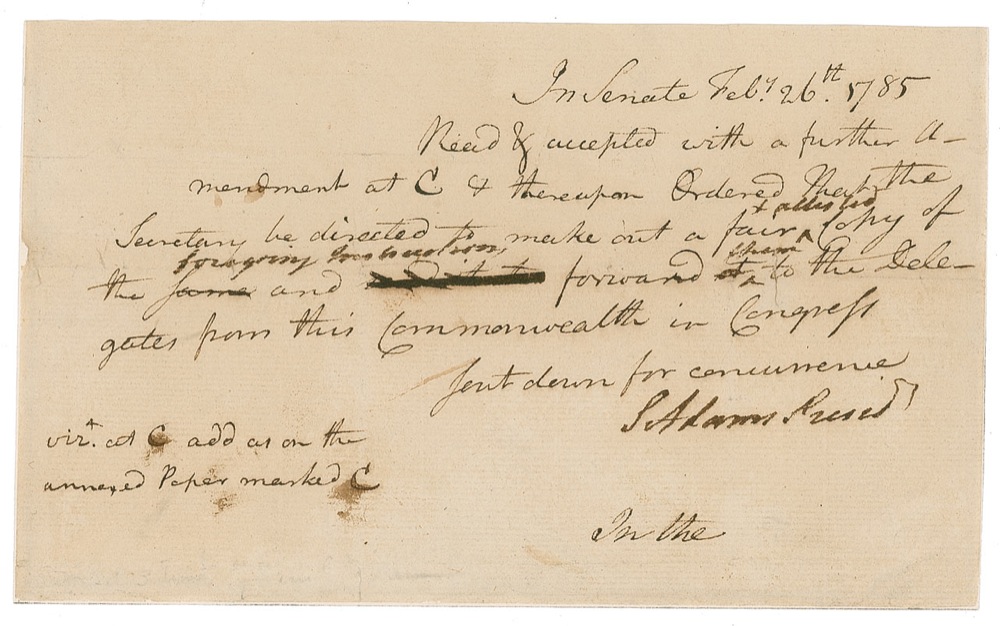 In Senate Feb.y 26.th 1785
Read & accepted with a further A-
mendment at C & thereupon Ordered That the
& attested
Secretary be directed to make out a fair ^ Copy of
foregoing Instructions them
the same and forward it ^ to the Dele-
gates from this Commonwealth in Congress
sent down for concurrence
S Adams Presid
viz.t at C add as on the
annexed Paper marked C
In the